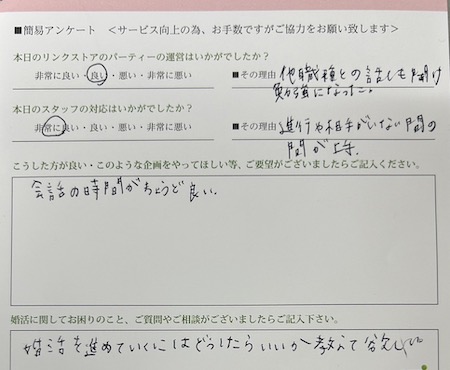 ■簡易アンケート　＜サービス向上の為、お手数ですがご協力をお願い致します＞
本日のリンクストアのパーティーの運営はいかがでしたか？
非常に良い・良い・悪い・非常に悪い
■その理由 他職種との話しも聞け
勉強になった。
本日のスタッフの対応はいかがでしたか？
非常に良い・良い・悪い・非常に悪い
■その理由 進行や相手がいない間の
間が上手。
こうした方が良い・このような企画をやってほしい等、ご要望がございましたらご記入ください。
会話の時間がちょうど良い。
婚活に関してお困りのこと、ご質問やご相談がございましたらご記入下さい。
婚活を進めていくにはどうしたらいいか教えて欲しい